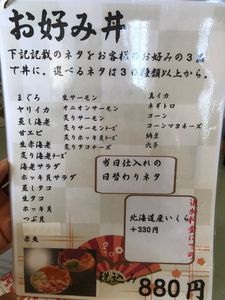 お好み丼
下記記載のネタをお客様のお好みの3品
で丼に、選べるネタは30種類以上から。
まぐろ 生サーモン 真イカ
ヤリイカ オニオンサーモン ネギトロ
蒸し海老 炙りサーモン コーン
甘エビ 炙りサーモンチーズ コーンマヨネーズ
生赤海老 炙りサーモントロ 納豆
炙り海老チーズ 炙りタコチーズ 穴子
海老サラダ
ホッキ貝サラダ
蒸しタコ
生タコ
ホッキ貝
つぶ貝
赤魚
当日仕入れの
日替わりネタ
北海道産いくら
+330円
追加料金にての
税込み 880円